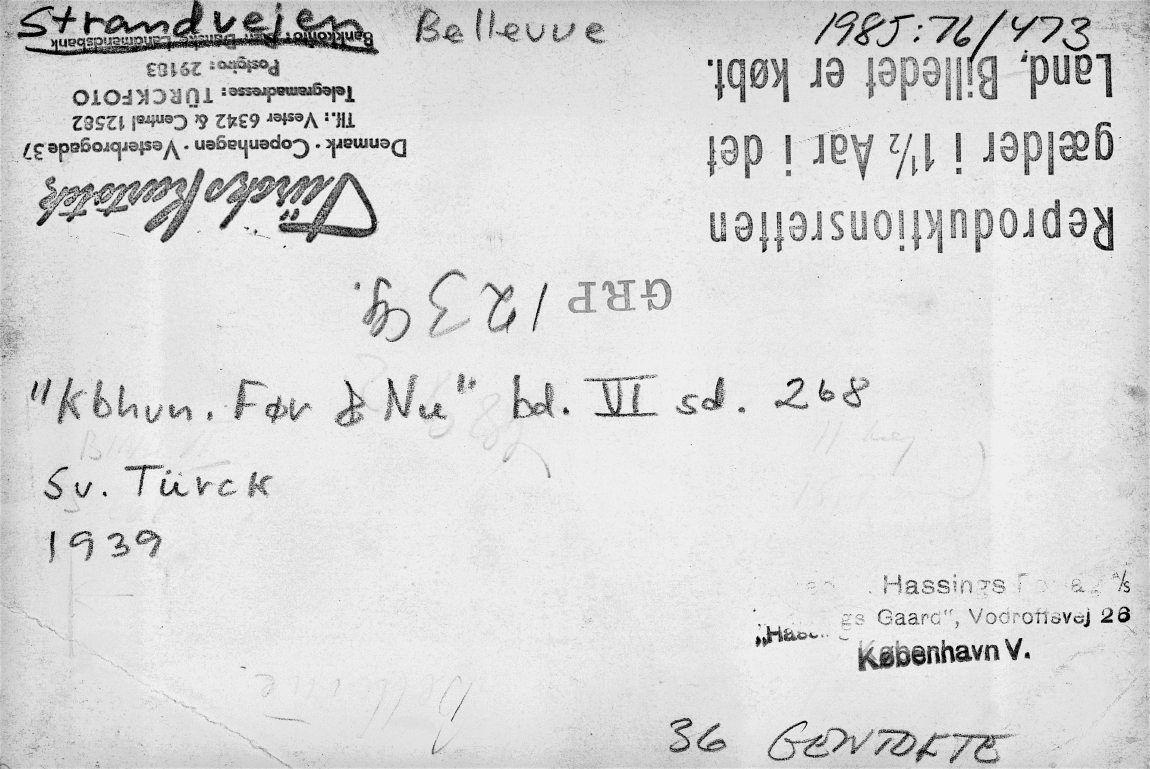 Strandvejen Bellevue 1985:76/473
Bankkonto: Den Danske Landmandsbank
Postgiro: 29183
Telegramadresse: TÜRCKFOTO
Tlf.: Vester 6342 & Central 12582
Denmark · Copenhagen · Vesterbrogade 37
Türcks Kartotek
Reproduktionsretten
gælder i 1½ Aar i det
Land, Billedet er købt.
GRP 1234.
"Kbhvn. Før & Nu" bd. VI sd. 268
Sv. Türck
1939
Hassings Forlag A/S
"Hassings Gaard", Vodroffsvej 26
København V.
Bellevue
36 GENTOFTE